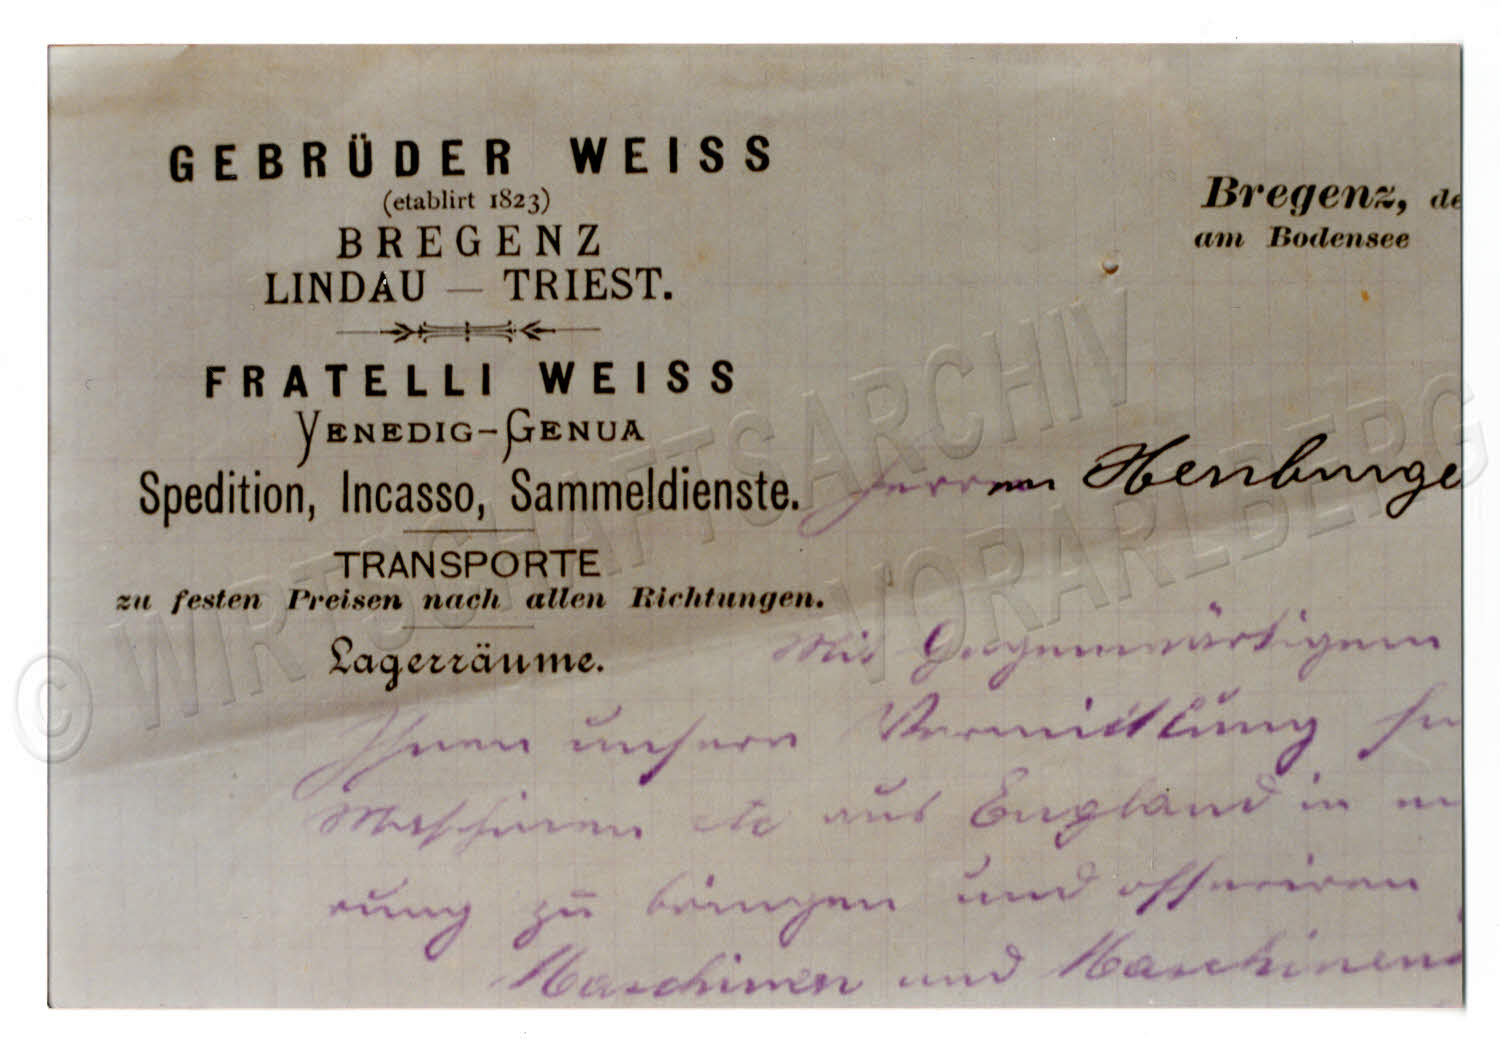 GEBRÜDER WEISS
(etablirt 1823)
BREGENZ
LINDAU — TRIEST.
FRATELLI WEISS
VENEDIG-GENUA
Spedition, Incasso, Sammeldienste.
TRANSPORTE
zu festen Preisen nach allen Richtungen.
Lagerräume.
Bregenz, de
am Bodensee
Herren Henburge
Mit Gegenwärtigem
Ihnen unsere Vermittlung
Maschinen etc aus England in
rung zu bringen und offeriren
Maschinen und Maschinen
© WIRTSCHAFTSARCHIV
VORARLBERG